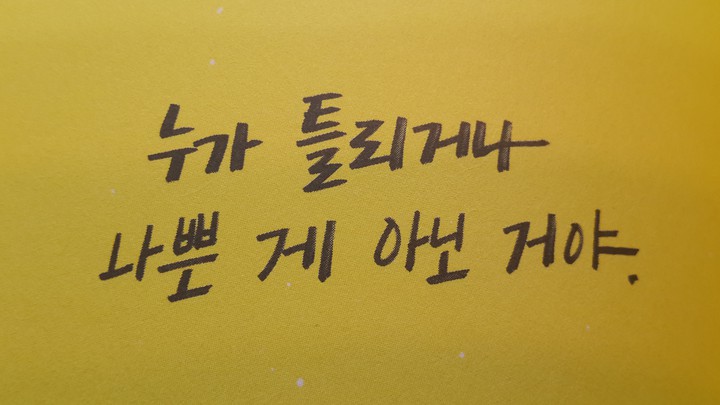 누가 틀리거나
나쁜 게 아닌 거야.